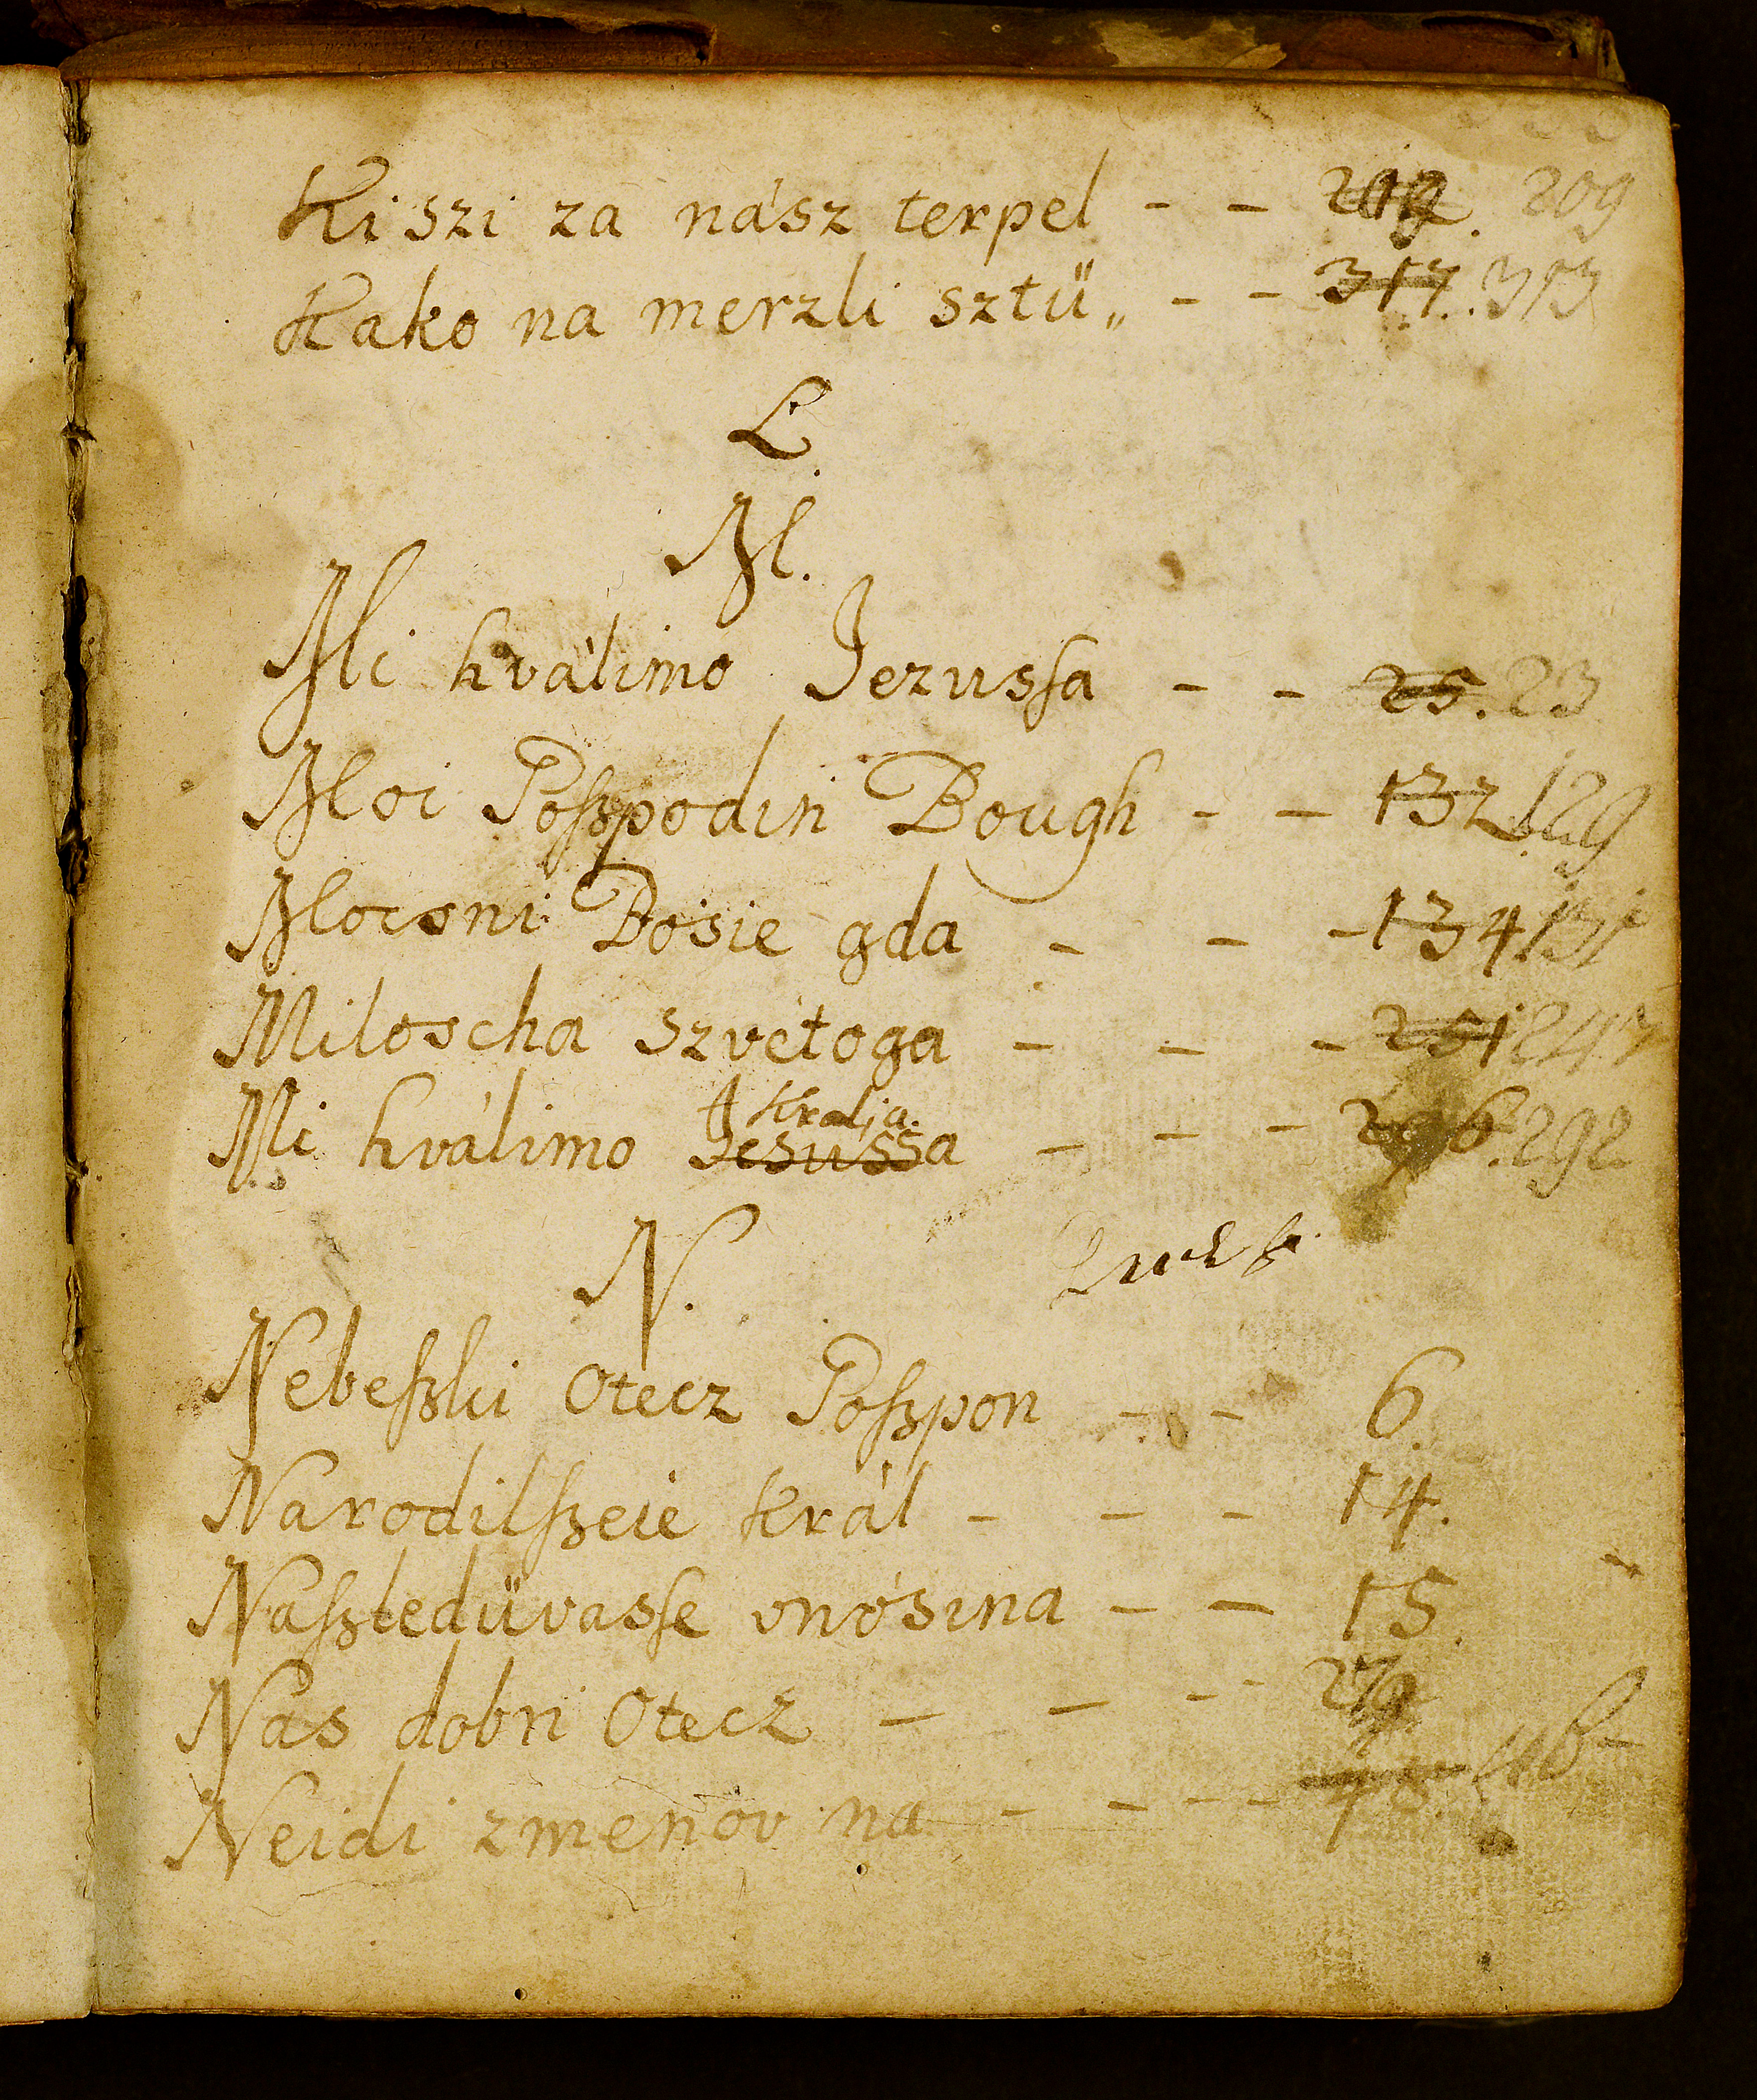 Ki szi za nász terpel - - 209
Kako na merzli sztü„ - - 317. 313
L.
M.
Mi hválimo Jezusſa - - 25. 23
Moi Poſzpodin Bough - - 132. 129
Mocsni Bosie gda - - - 134. 131
Miloscha szvétoga - - - 251 247
Kralja.
Mi hválimo Jesussa - - - 296. 292
N.
Nebeſzki Otecz Poſzpon - - 6.
Narodilſzeie Král - - - 14.
Naſzledüvasſe vnósina - - 15.
Nas dobri Otecz - - - 
Neidi zmenov na - - - -